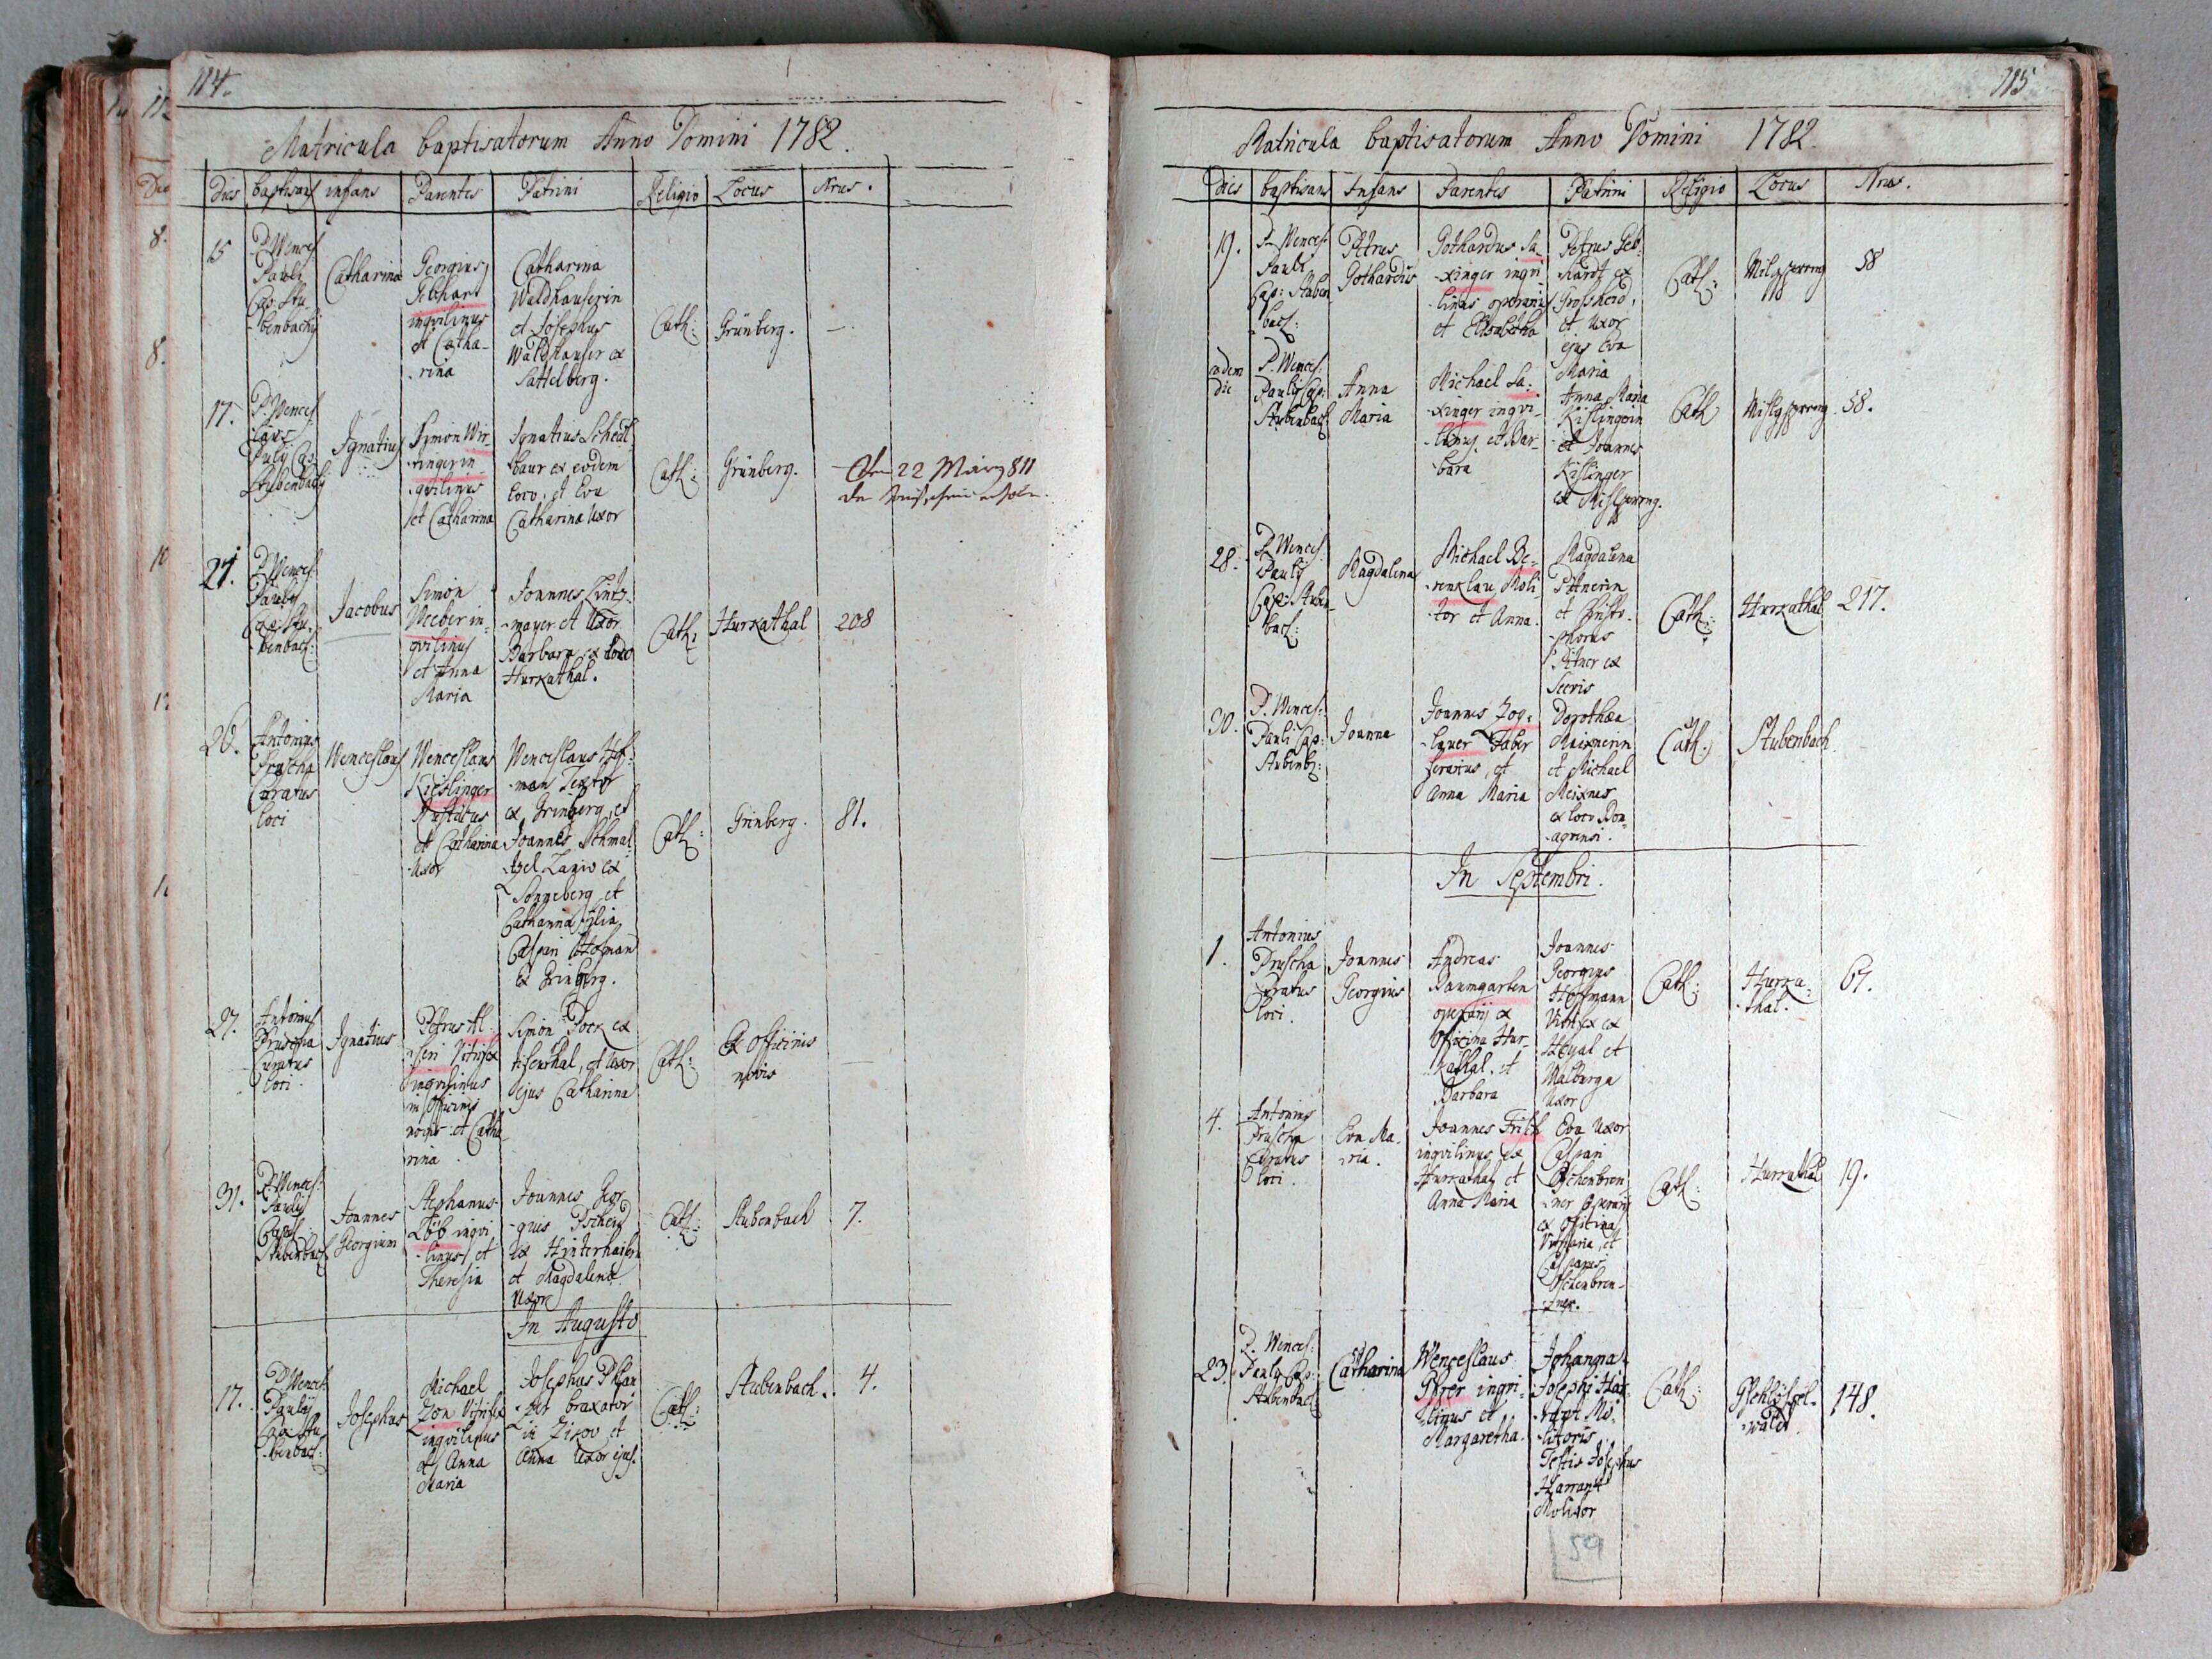 114.
Matricula baptisatorum Anno Domini 1782.
Dies baptisans infans Parentes Patrini Religio Locus Nrus.
15
P. Wences:
Pauli
Cap: Stu-
-benbachÿ
Catharina
Georgius
Gebhart
inqvilinus
et Catha-
-rina
Catharina
Waldhauserin
et Josephus
Waldhauser ex
Sattelberg.
Cath:
Grünberg.
—
17.
P. Wences-
-laus
Pulÿ Cap:
Stubenbachÿ
Ignatius
Simon Wir-
-tinger in-
-qvilinus
et Catharina
Ignatius Schedl-
-baur ex eodem
loco, et Eva
Catharina Uxor
Cath:
Grünberg.
Den 22 März 811
27.
P. Wences:
Paulÿ
Cap: Stu-
-benbach:
Jacobus
Simon
Weeber in-
-qvilinus
et Anna
Maria
Joannes Lintz-
-mayer et Uxor
Barbara ex loco
Hurkathal.
Cath:
Hurkathal
208
26.
Antonius
Pruscha
Curatus
loci
Wenceslaus
Wenceslaus
Kieslinger
Rusticus
et Catharina
Uxor
Wenceslaus Hof-
-man Textor
ex Grinberg, et
Joannes Schmal-
-tzel Lanio ex
Sonneberg et
Catharina filia
Caspari Hofman
ex Grinberg.
Cath:
Grinberg.
81.
27.
Antonius
Pruscha
Curatus
loci.
Ignatius
Petrus Al-
-seri Vitrifex
inqvilinus
in officinis
novis et Catha-
rina.
Simon Pock ex
Eisenthal, et Uxor
ejus Catharina
Cath:
Ex officinis
novis
—
31.
P. Wences:
Paulÿ
Capel:
Stubenbach
Joannes
Georgium
Stephanus
Löb inqvi-
-linus et
Theresia
Joannes Geor-
-gius Pscheid
ex Hinterhaiser
et Magdalena
Uxor
Cath:
Stubenbach
7.
In Augusto
17.
P. Wences:
Paulÿ
Cap: Stu-
-benbach:
Josephus
Michael
Zon Vitrifex
inqvilinus
et Anna
Maria
Josephus Pflan-
-zer braxator
in Zikov et
Anna Uxor ejus.
Cath:
Stubenbach.
4.
115
Matricula baptisatorum Anno Domini 1782.
Dies baptisans Infans Parentes Patrini Religio Locus Nrus.
19.
P. Wences:
Pauli
Cap: Stuben
bach:
Petrus
Gothardus
Gothardus Sa-
-xinger inqvi
linus operarius
et Elisabetha
Petrus Geb-
-hardt ex
Grosshaid,
et Uxor
ejus Eva
Maria
Cath:
58
eodem
die
P. Wences:
Paulÿ Cap:
Stubenbach
Anna
Maria
Michael Sa-
-xinger inqvi-
-linus, et Bar-
-bara
Anna Maria
Kislingerin
et Joannes
Kislinger
Cath
58.
28.
P. Wences:
Paulÿ
Cap: Stuben-
bach:
Magdalena
Michael Be-
-renklau, Moli-
-tor et Anna.
Magdalena
Pitnerin
et Christo-
-phorus
Pitner ex
Seevis
Cath:
Hurkathal
217.
30.
P. Wences:
Pauli Cap:
Stubenb:
Joanna
Joannes Zog-
-lauer Faber
ferarius, et
Anna Maria
Dorothæa
Meixnerin
et Michael
Meixner
ex loco Don-
-agrensi.
Cath:
Stubenbach.
In Septembri.
1.
Antonius
Pruscha
Curatus
loci.
Joannes
Georgius
Andreas
Baumgarten
operarÿ ex
officina Hur-
-kathal, et
Barbara
Joannes
Georgius
Hoffmann
Vitrifex ex
Heyal et
Walburga
Uxor
Cath:
Hurka-
-thal.
67.
4.
Antonius
Pruscha
Curatus
loci.
Eva Ma-
-ria.
Joannes Frisch
inqvilinus ex
Hurkathal et
Anna Maria
Eva Uxor
Caspari
Aschenbren-
-ner operarÿ
ex officina
Vitriaria, et
Casparus
Aschenbren-
-ner.
Cath:
Hurkathal
19.
23.
P. Wences:
Paulÿ Cap:
Stubenbach
Catharina
Wenceslaus
Ehrer inqvi-
linus et
Margaretha.
Johanna
Josephi Har-
-rant Mo-
-litoris
Testis Josephus
Harrant
Molitor
Cath:
Gschlössel-
-wald.
148.
59